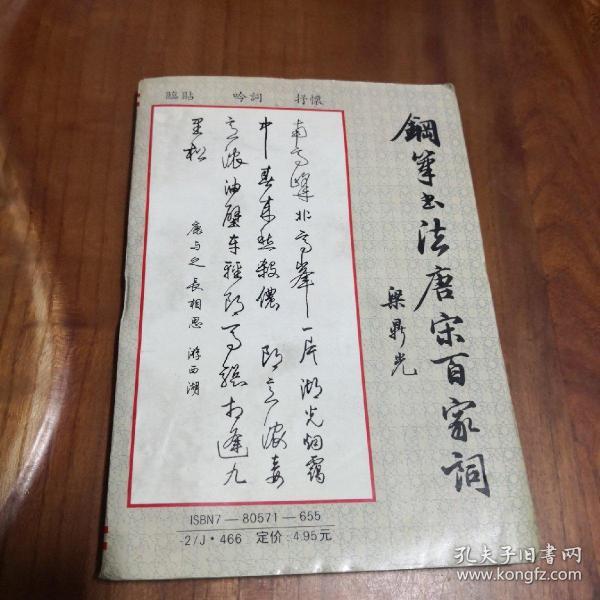 臨貼 吟詞 抒懷
鋼筆书法唐宋百家词
梁鼎光
南高峰北高峯一片湖光烟靄
中春来愁殺儂 郎意浓妾
意浓油壁车轻郎马骢相逢九
里松
康与之 長相思 游西湖
ISBN7—80571—655
-2/J·466 定价:4.95元
孔夫子旧书网
www.kongfz.com